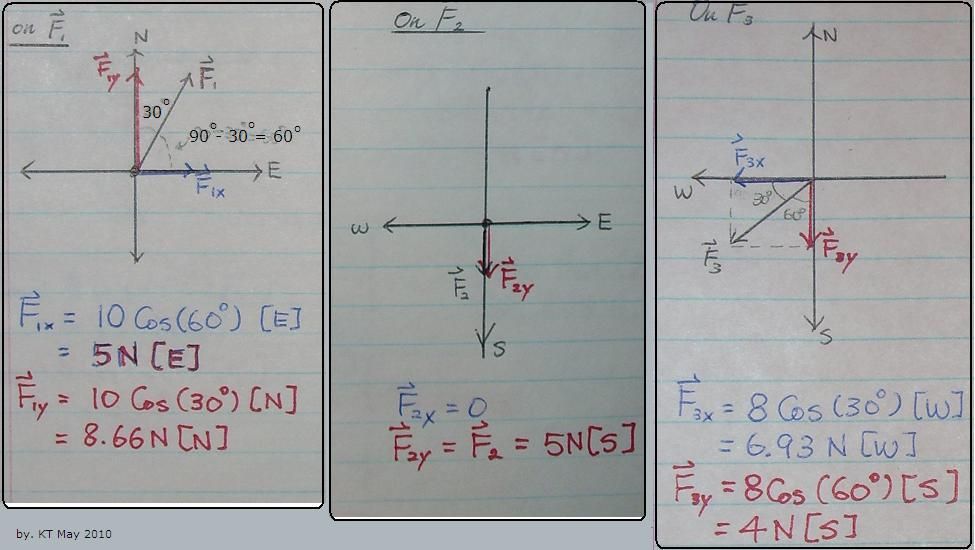 on F⃗₁
N
F⃗₁y
F⃗₁
30°
90°- 30°= 60°
E
F⃗₁x
F⃗₁x = 10 Cos(60°) [E]
= 5N [E]
F⃗₁y = 10 Cos(30°) [N]
= 8.66N [N]
by. KT May 2010
On F₂
W
E
F⃗₂
F⃗₂y
S
F⃗₂x = 0
F⃗₂y = F⃗₂ = 5N[S]
On F₃
N
F⃗₃x
W
30°
60°
F⃗₃
F⃗₃y
S
F⃗₃x = 8 Cos(30°) [W]
= 6.93 N [W]
F⃗₃y = 8Cos(60°) [S]
= 4N[S]